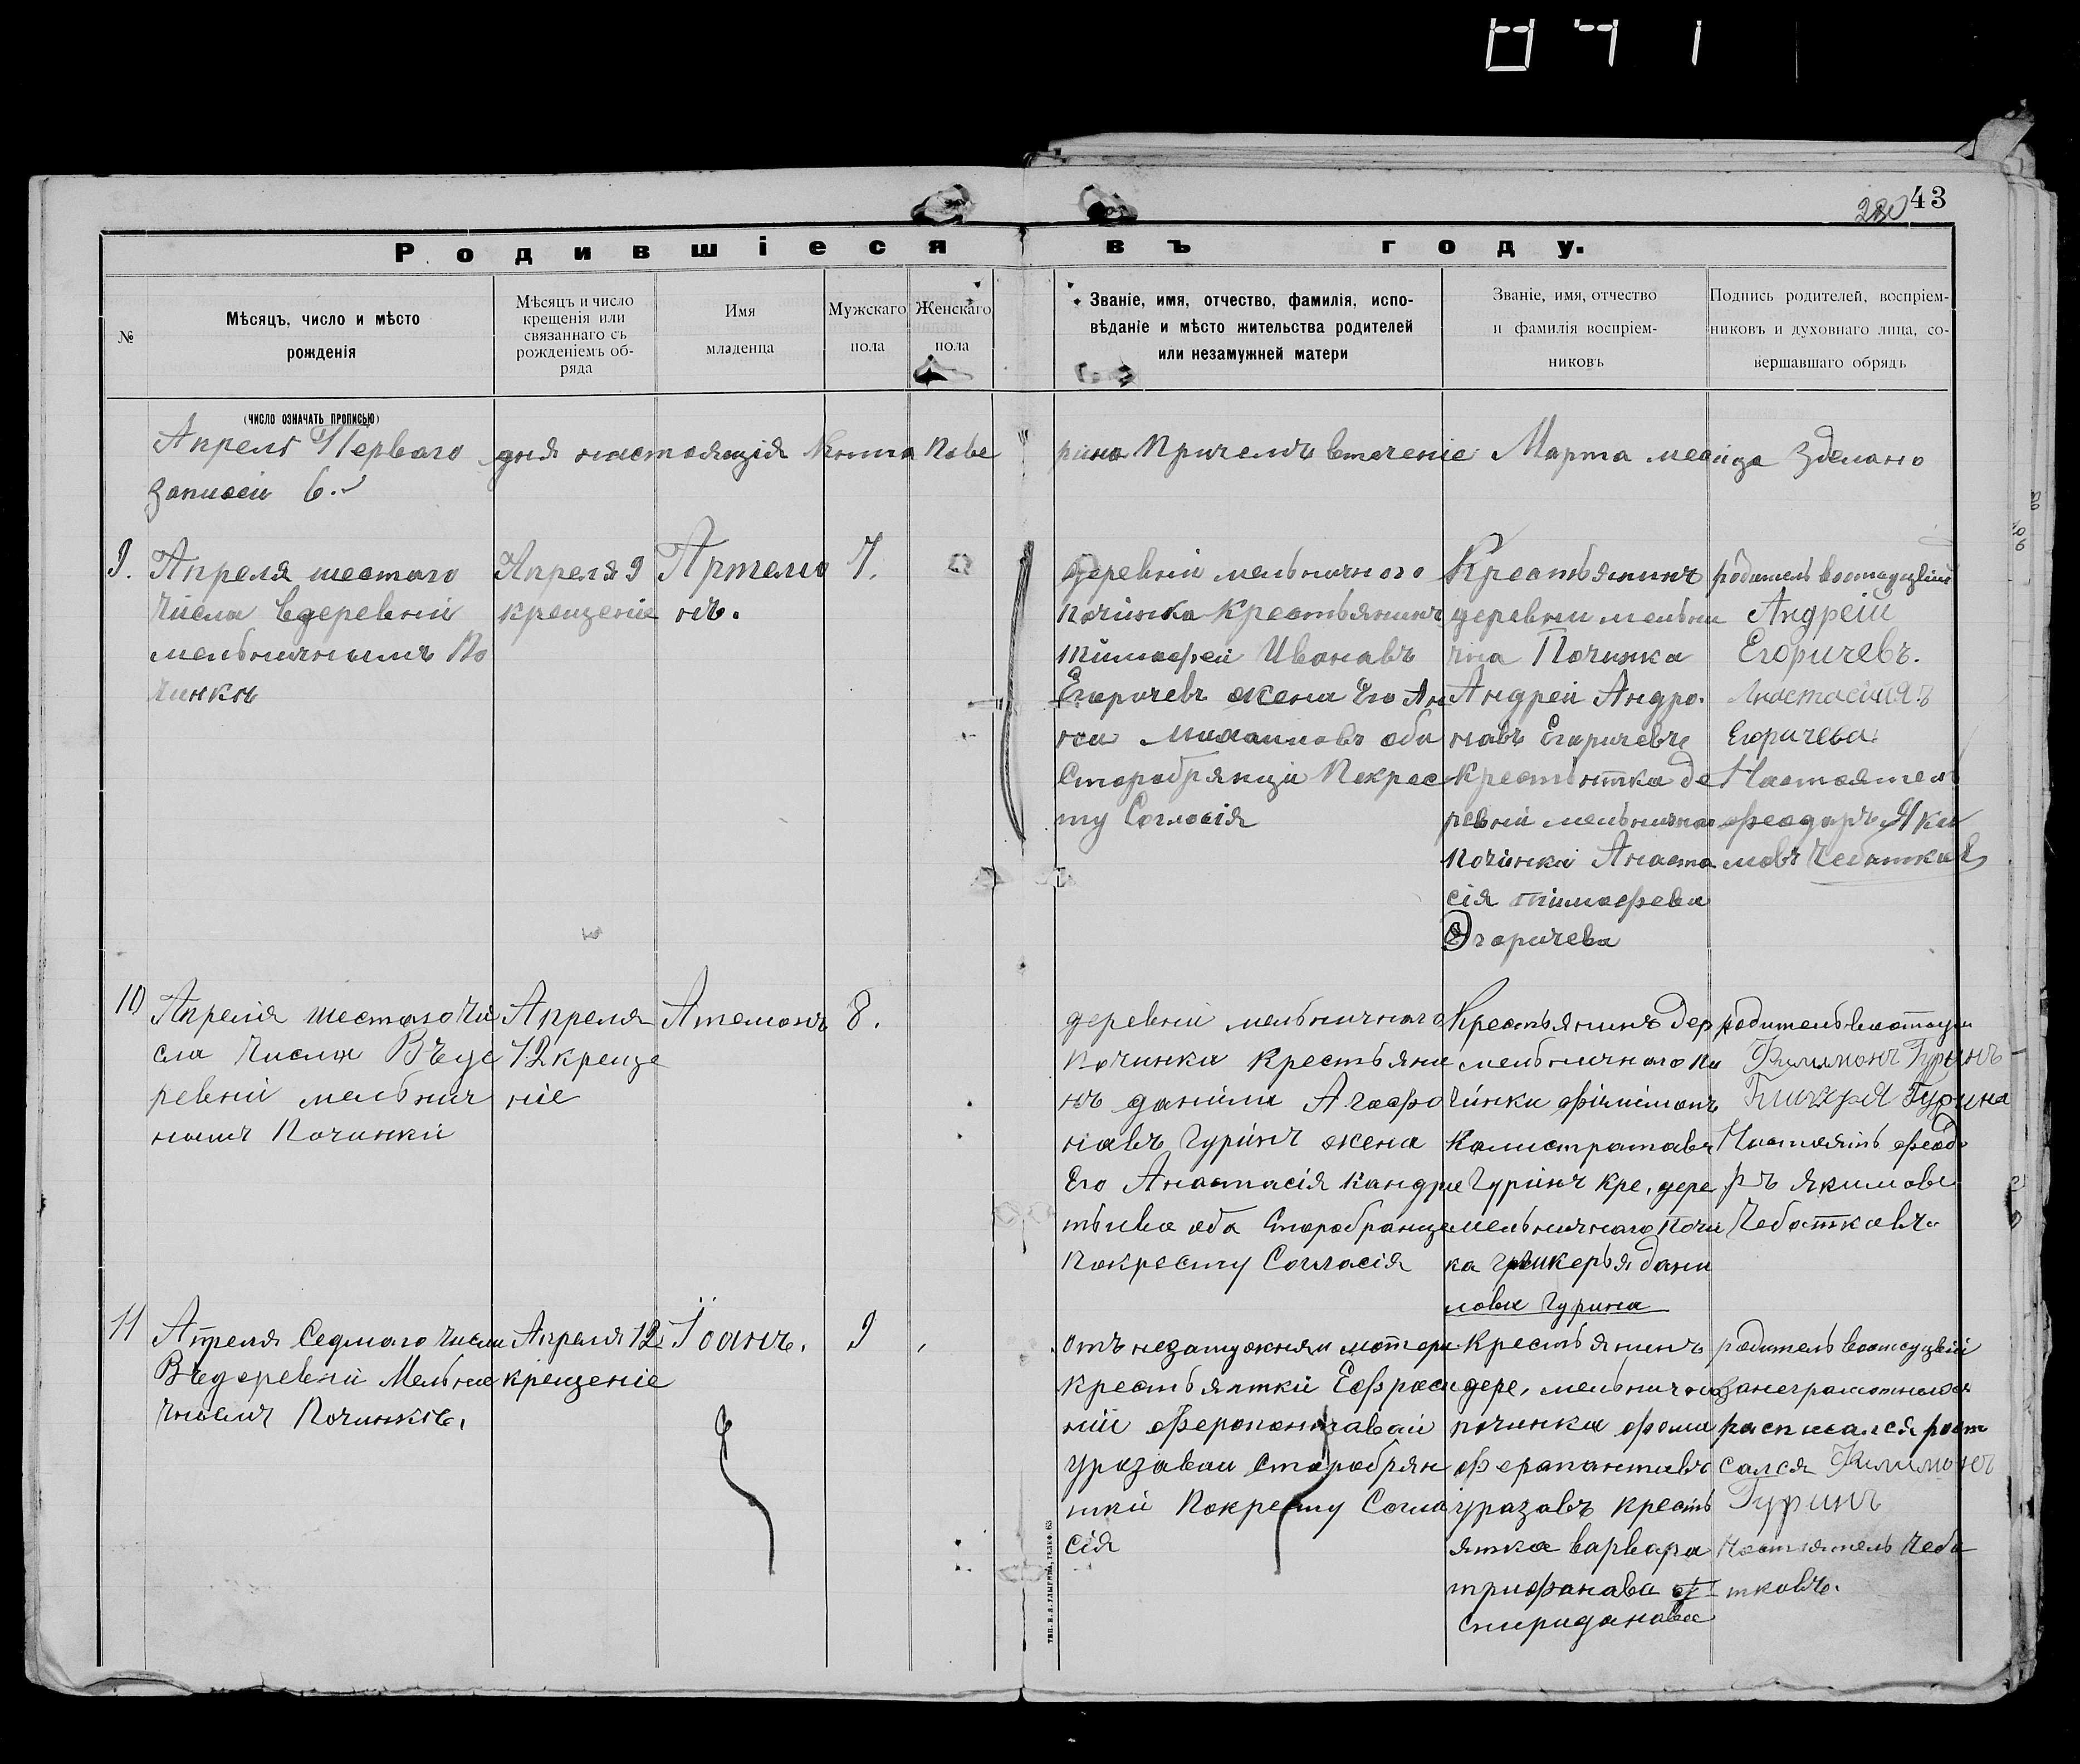 43
280
Родившіеся въ году.
№
Мѣсяцъ, число и мѣсто
рожденія
Мѣсяцъ и число
крещенія или
связаннаго съ
рожденіемъ об-
ряда
Имя
младенца
Мужскаго
пола
Женскаго
пола
Званіе, имя, отчество, фамилія, испо-
вѣданіе и мѣсто жительства родителей
или незамужней матери
Званіе, имя, отчество
и фамилія воспріем-
никовъ
Подпись родителей, воспріем-
никовъ и духовнаго лица, со-
вершавшаго обрядъ
(число означать прописью)
Апреля Перваго дня настоящія Книга Пове рина Причемъ втечение Марта месица зделано
записей 6.
9.
Апреля шестаго
числа вдеревнй
мельничнымъ По
чинкѣ
Апреля 9
крещеніе
Артемо
нъ.
7.
деревнй мельничного
починка Крестьянинъ
тимофей Ивановъ
Егоричевъ жена Его Ан
на Михаиловъ оба
Старобрянци Покрес
ту Согласія
Крестьянинъ
деревни мельни
чна Починка
Андрей Андро.
навъ Егоричевъ
Крестьянтка де
ревнй мельнична
починкй Анаста
сія тимофева
Егоричева
родитель воотсуцвіи
Андрей
Егоричевъ.
Анастасийя
Егоричева
Настоятель
феодаръ Яки
мовъ Чеботкав
10
Апреля шестаго чи
сла числа Въде
ревнй мельнич
номъ Починки
Апреля
12 креще
ніе
Атемонъ
8.
деревнй мельничнаго
Починка Крестьяни
нъ данила Агафо
навъ Гуринъ жена
Его Анастасія Кандра
тьива оба Старобранце
Покресту Согласія
Крестьянинъ дер
мельничнаго По
чинки филимонъ
Калистратавъ
Гуринъ кре, дере
мельничнаго Почи
ка гликерья дани
лова Гурина
родитель воотсуц
Филимонъ Гуринъ
Гликеря Гурина
Настоятль феода
ръ якимове
Чеботкавъ
11
Апреля Седмаго числа
Въдеревнй Мельни
чномъ Починкѣ,
Апреля 12
крещеніе
Іоанъ.
9
отъ незамужням матери
Крестьянткй Ефроси
нйй ферапонтавай
Уразаваи Старобрян
ткй Покресту Согла
сія
Крестьянинъ
дере, мельнична
починка фома
ферапантавъ
уразавъ кресть
янтка варвара
трифанава
Спириданава
родитель воотсуцвіи
занеграмотность
расписался рост
сался Филимонъ
Гуринъ
Настоятель Чебо
ткавъ.